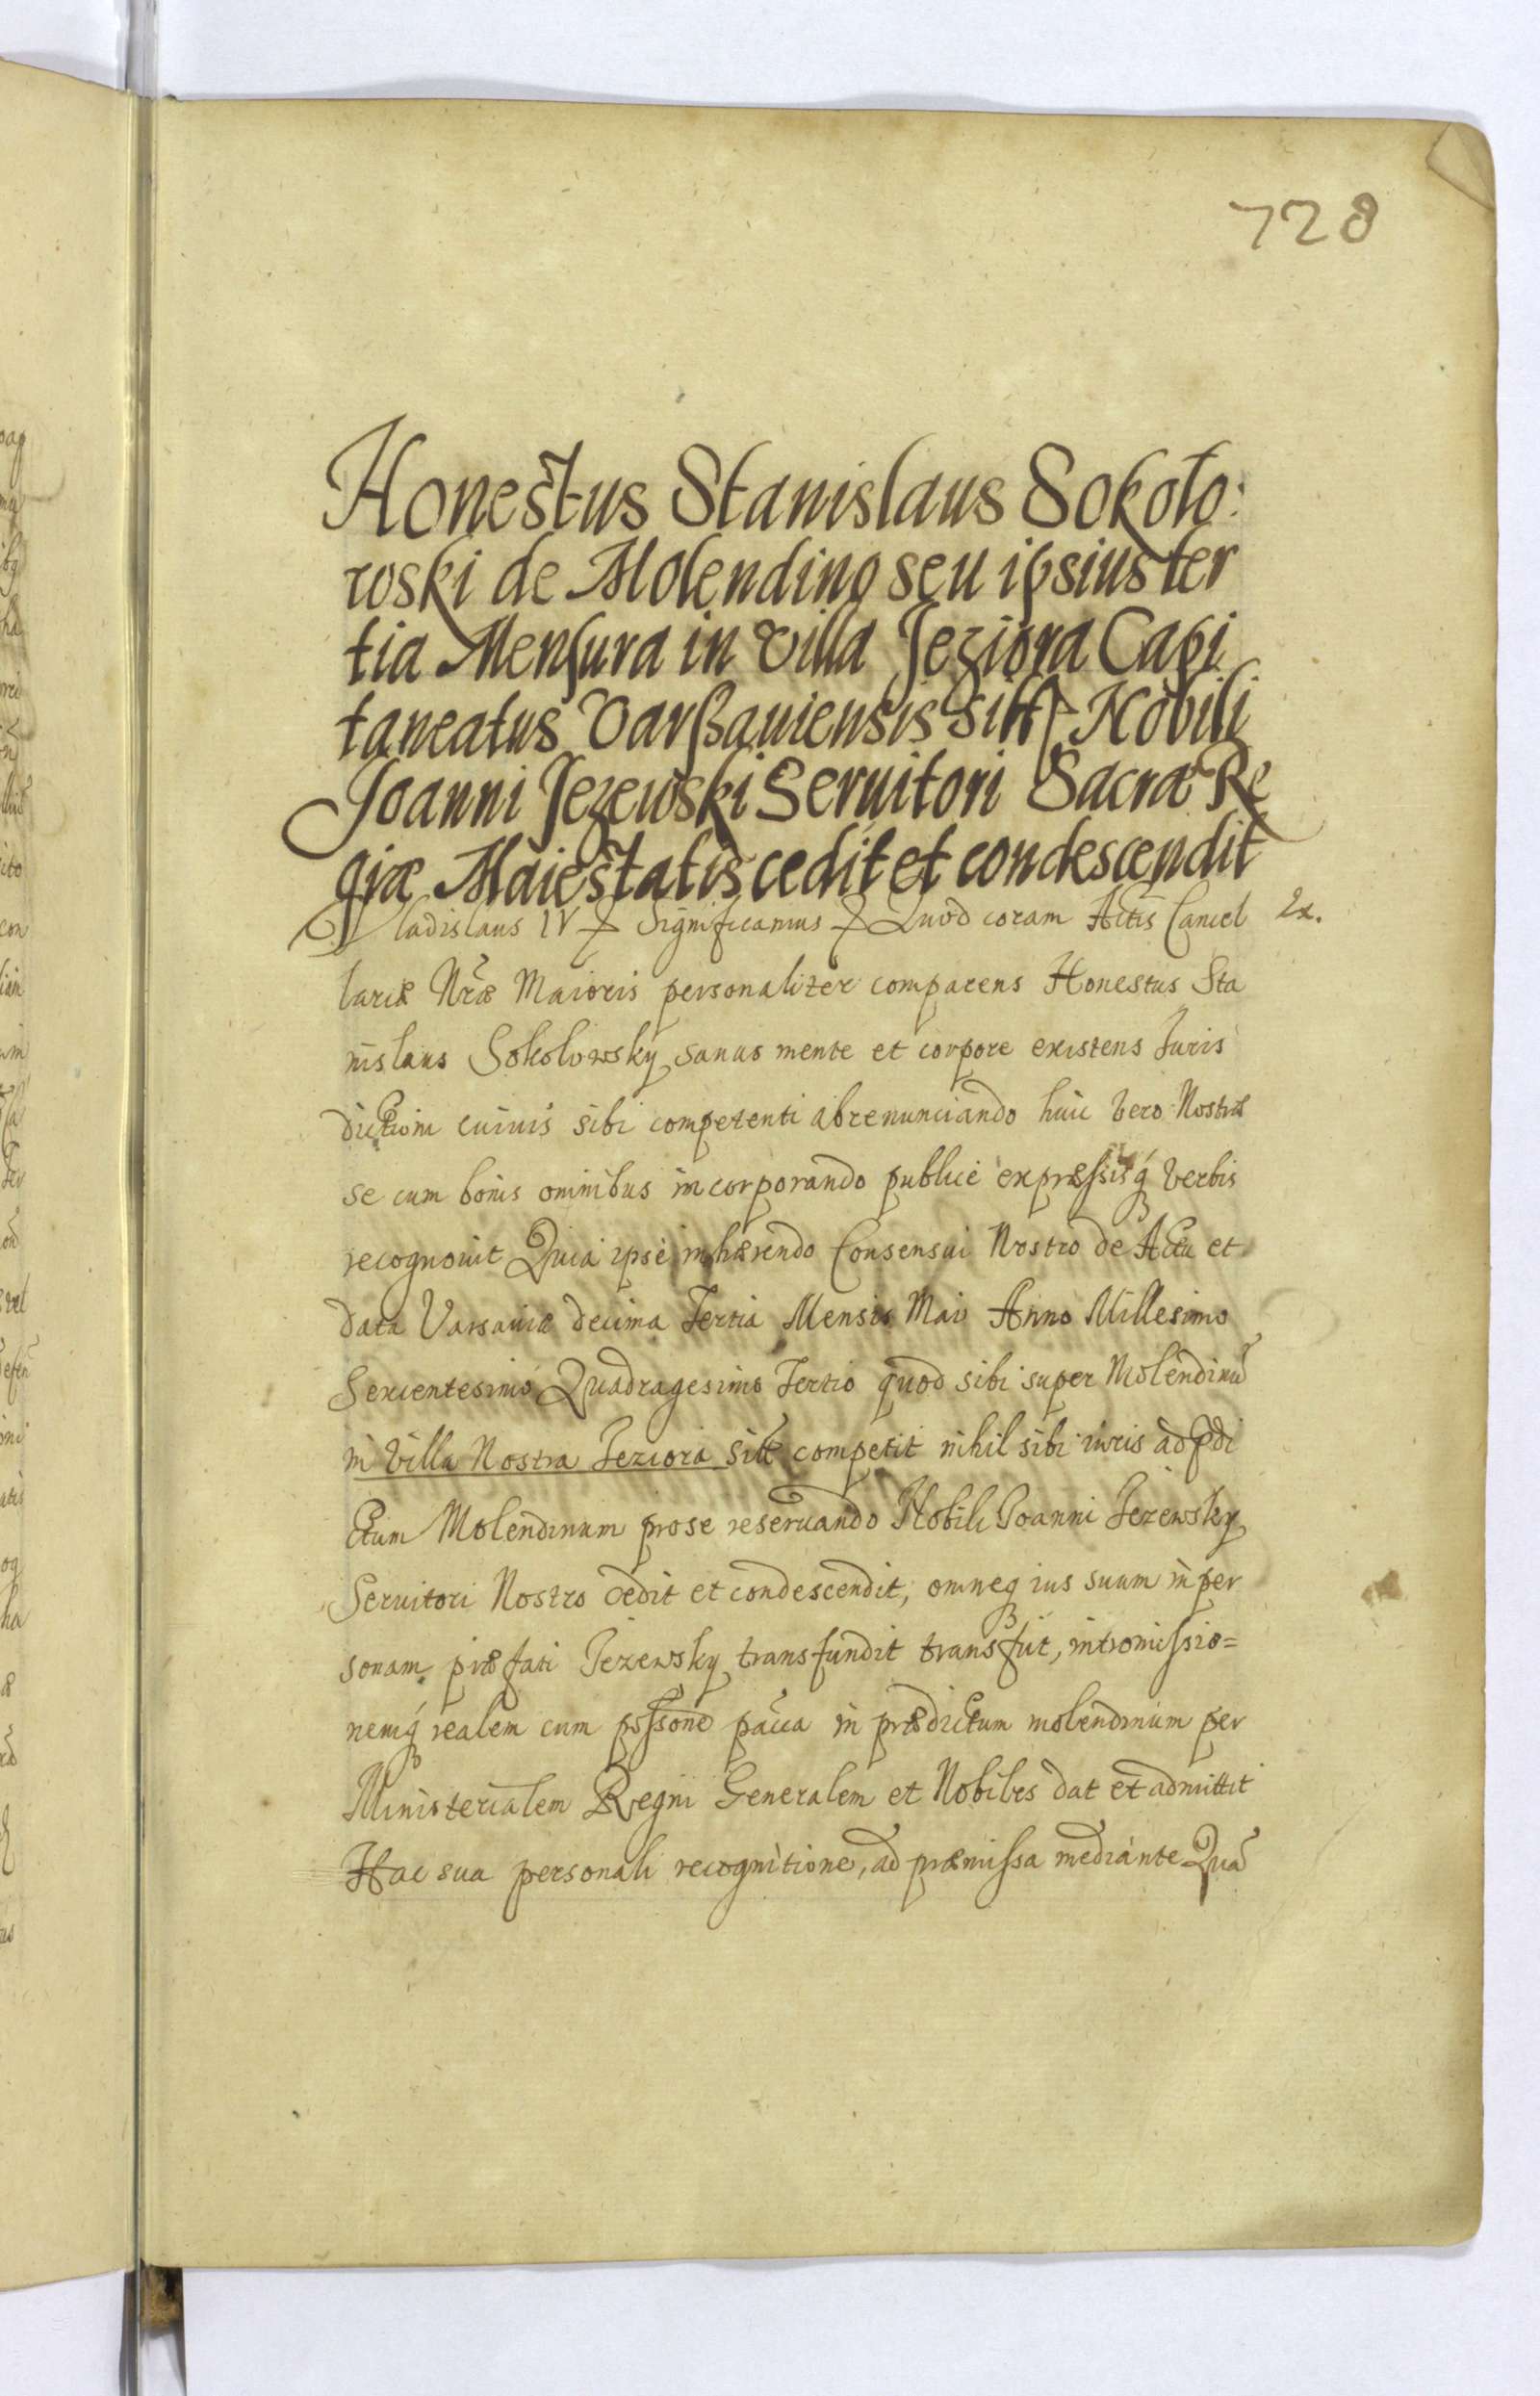 728
Honestus Stanislaus Sokoło:
wski de Molendino seu ipsius ter
tia Mensura in villa Jeziora Capi
taneatus Varsauiensis sitt Nobili
Joanni Jezewski Seruitori Sacræ Re
giæ Maiestatis cedit et condescendit
Vladislaus IV Significamus Quod coram Actis Cancel Ex.
lariæ Nræ Maioris personaliter comparens Honestus Sta
nislaus Sokolowsky sanus mente et corpore existens Juris
dictioni cuiuis sibi competenti abrenunciando huic vero Nostræ
se cum bonis omnibus incorporando publice expressisq́ verbis
recognouit Quia ipse inhærendo Consensui Nostro de Actu et
data Varsauiæ decima Tertia Mensis Maii Anno Millesimo
Sexcentesimo Quadragesimo Tertio quod sibi super Molendinū
in villa Nostra Jeziora sitt competit nihil sibi iuris ad pdi
ctum Molendinum pro se reseruando Nobili Joanni Jezewsky
Seruitori Nostro cedit et condescendit, omneq ius suum in per
sonam præfati Jezewsky transfundit transfūt, intromissio=
nemq́ realem cum pssone pacca in prædictum molendinum per
Ministerialem Regni Generalem et Nobiles dat et admittit
Hac sua personali recognitione, ad præmissa mediante Quā